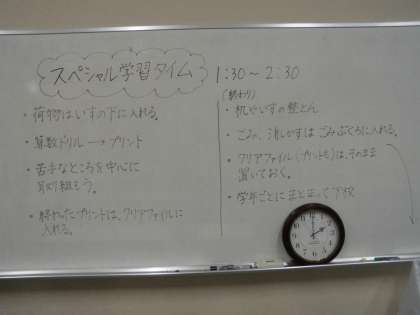 スペシャル学習タイム
1:30～2:30
・荷物はいすの下に入れる。
・算数ドリル→プリント
・苦手なところを中心に
取り組もう。
・終わったプリントは、クリアファイルに
入れる。
(終わり)
・机やいすの整とん
・ごみ、消しかすはごみぶくろに入れる。
・クリアファイル(プリントも)は、そのまま
置いておく。
・学年ごとにまとまって下校